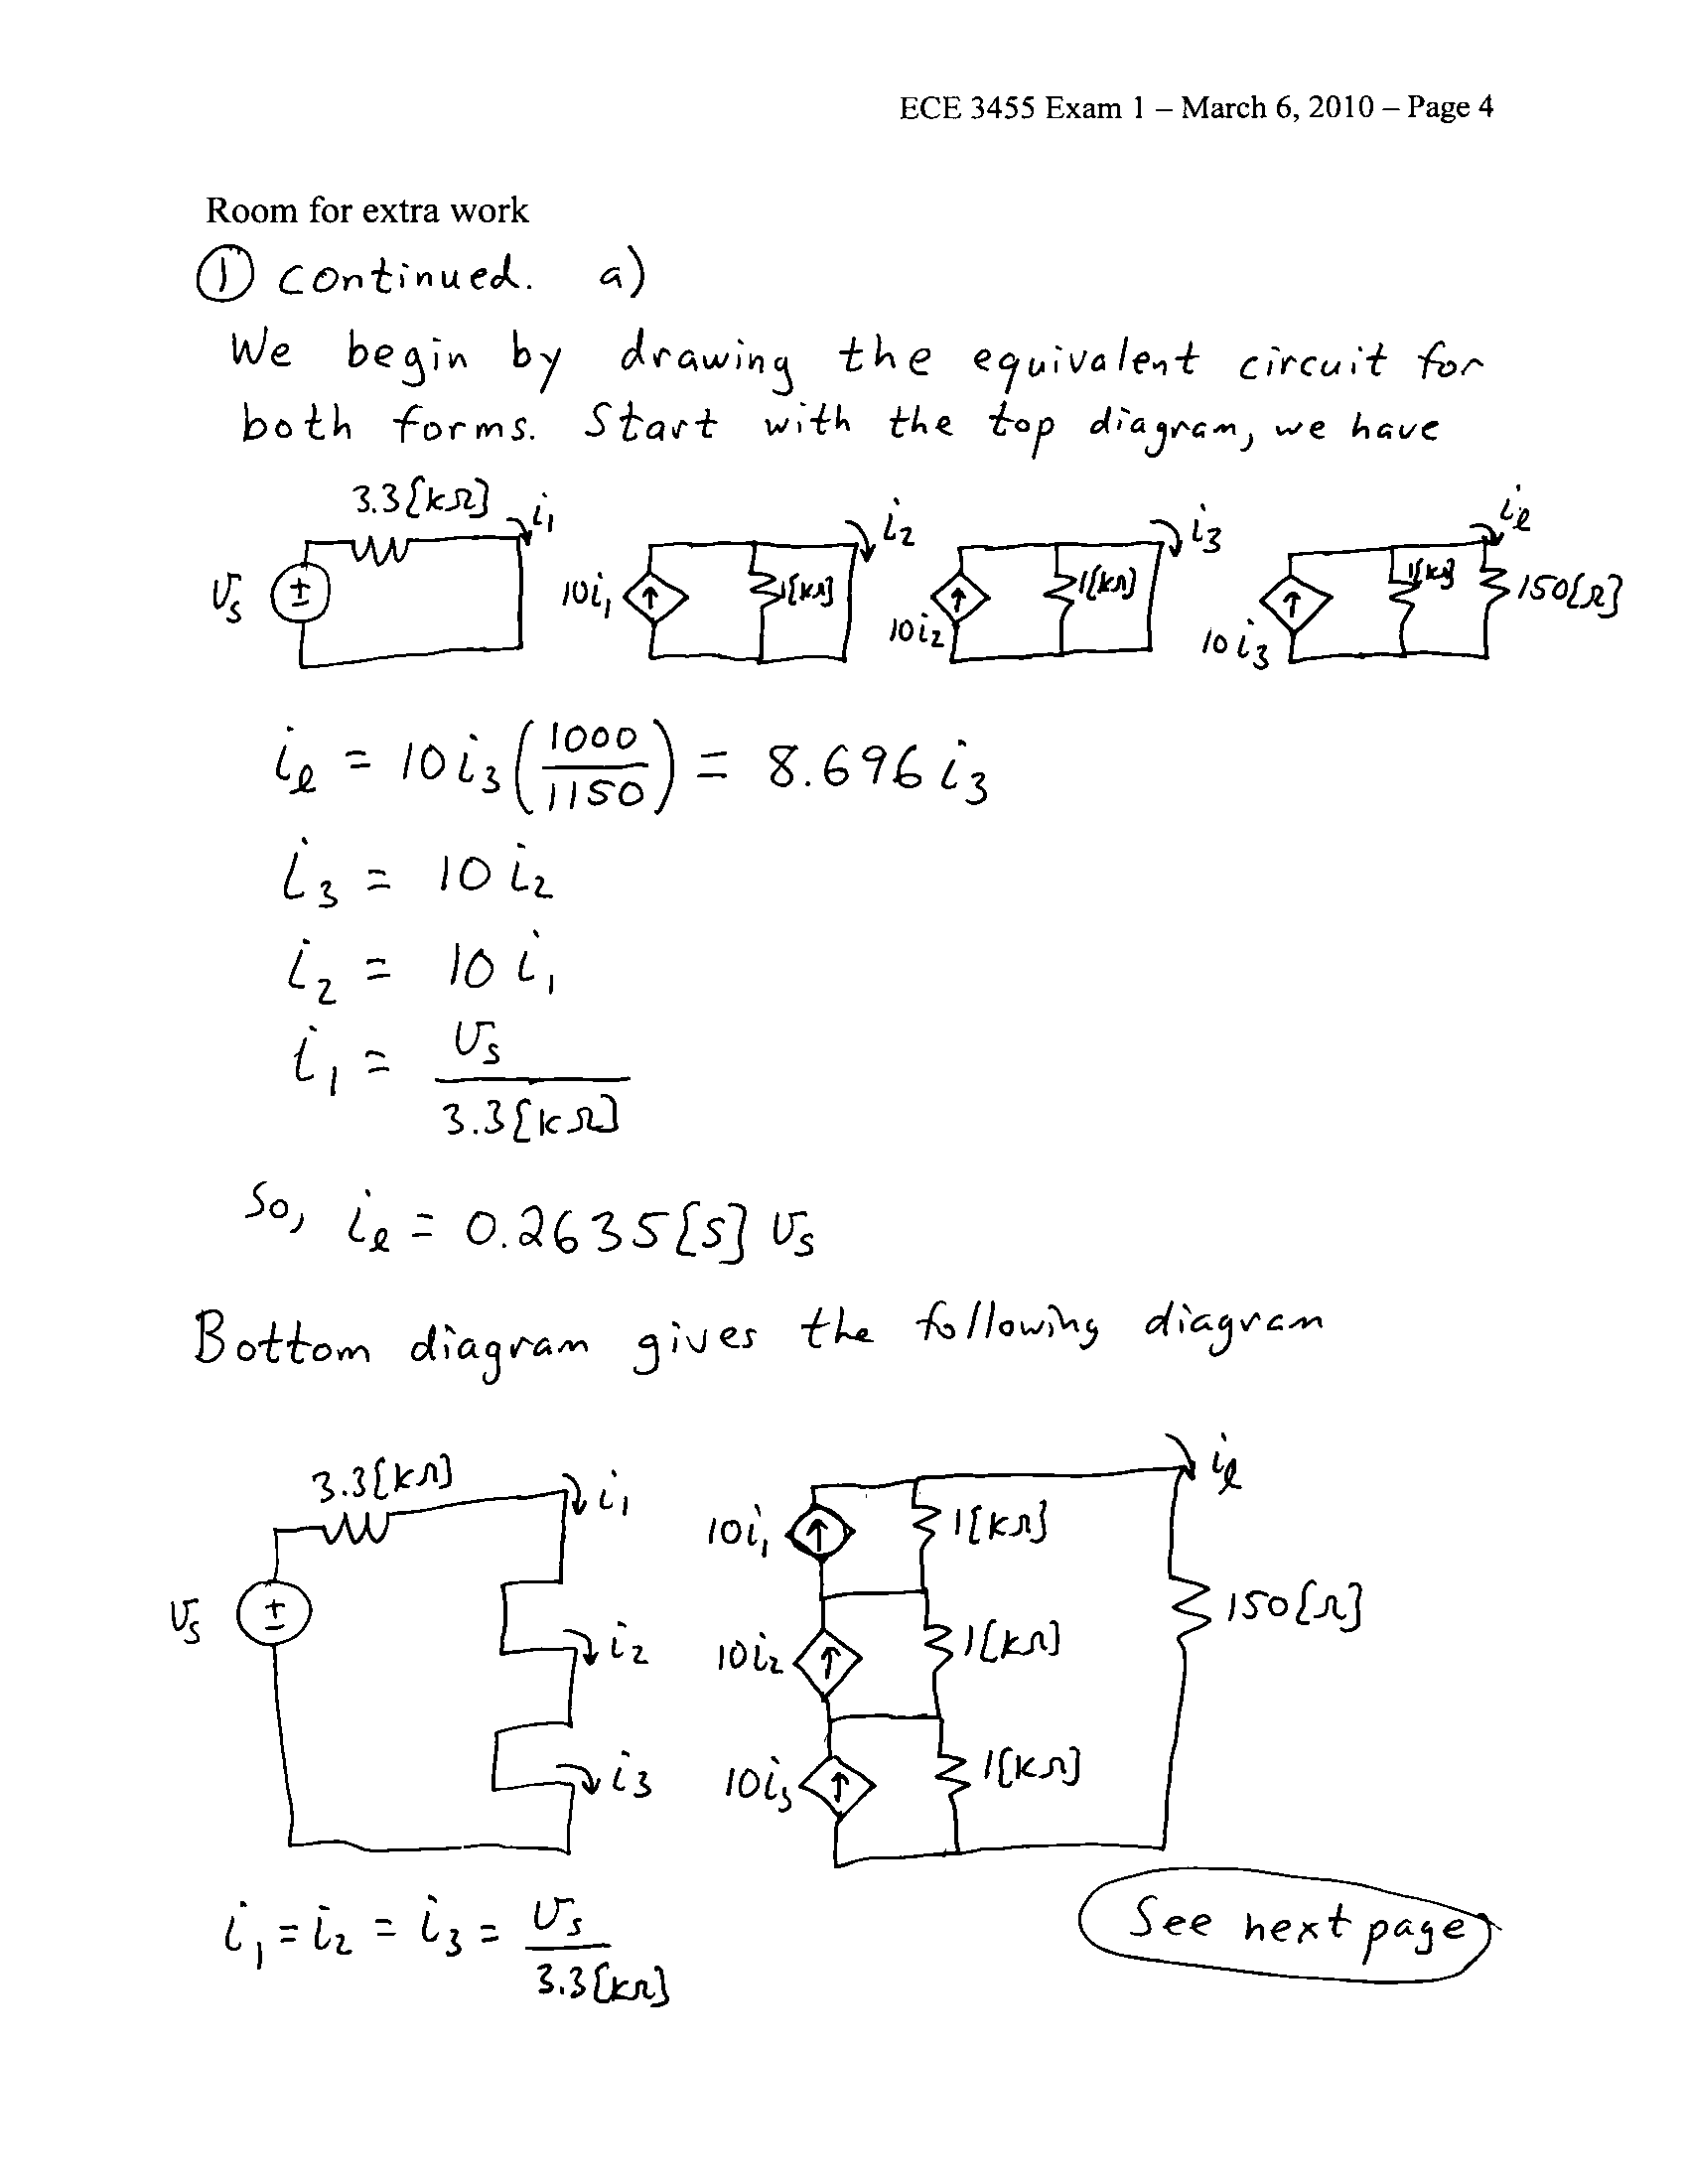 ECE 3455 Exam 1 – March 6, 2010 – Page 4
Room for extra work
① continued. a)
We begin by drawing the equivalent circuit for
both forms. Start with the top diagram, we have
3.3[kΩ] i₁ i₂ i₃ iℓ
vs ± 10i₁ 1[kΩ] 10i₂ 1[kΩ] 10i₃ 1[kΩ] 150[Ω]
iℓ = 10i₃(1000/1150) = 8.696 i₃
i₃ = 10 i₂
i₂ = 10 i₁
i₁ = vs / 3.3[kΩ]
So, iℓ = 0.2635[S] vs
Bottom diagram gives the following diagram
3.3[kΩ] i₁ 10i₁ 1[kΩ] iℓ
vs ± i₂ 10i₂ 1[kΩ] 150[Ω]
i₃ 10i₃ 1[kΩ]
i₁ = i₂ = i₃ = vs / 3.3[kΩ]
See next page